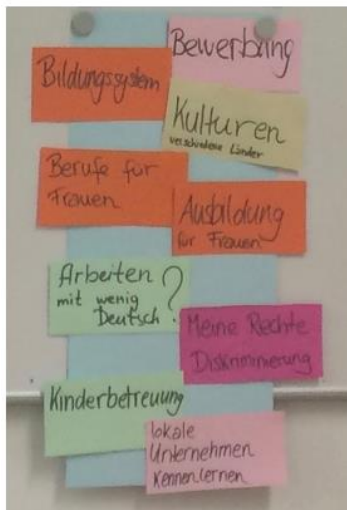 Bewerbung
Bildungssystem
Kulturen
verschiedene Länder
Berufe für
Frauen
Ausbildung
für Frauen
Arbeiten
mit wenig
Deutsch?
Meine Rechte
Diskriminierung
Kinderbetreuung
lokale
Unternehmen
kennenlernen